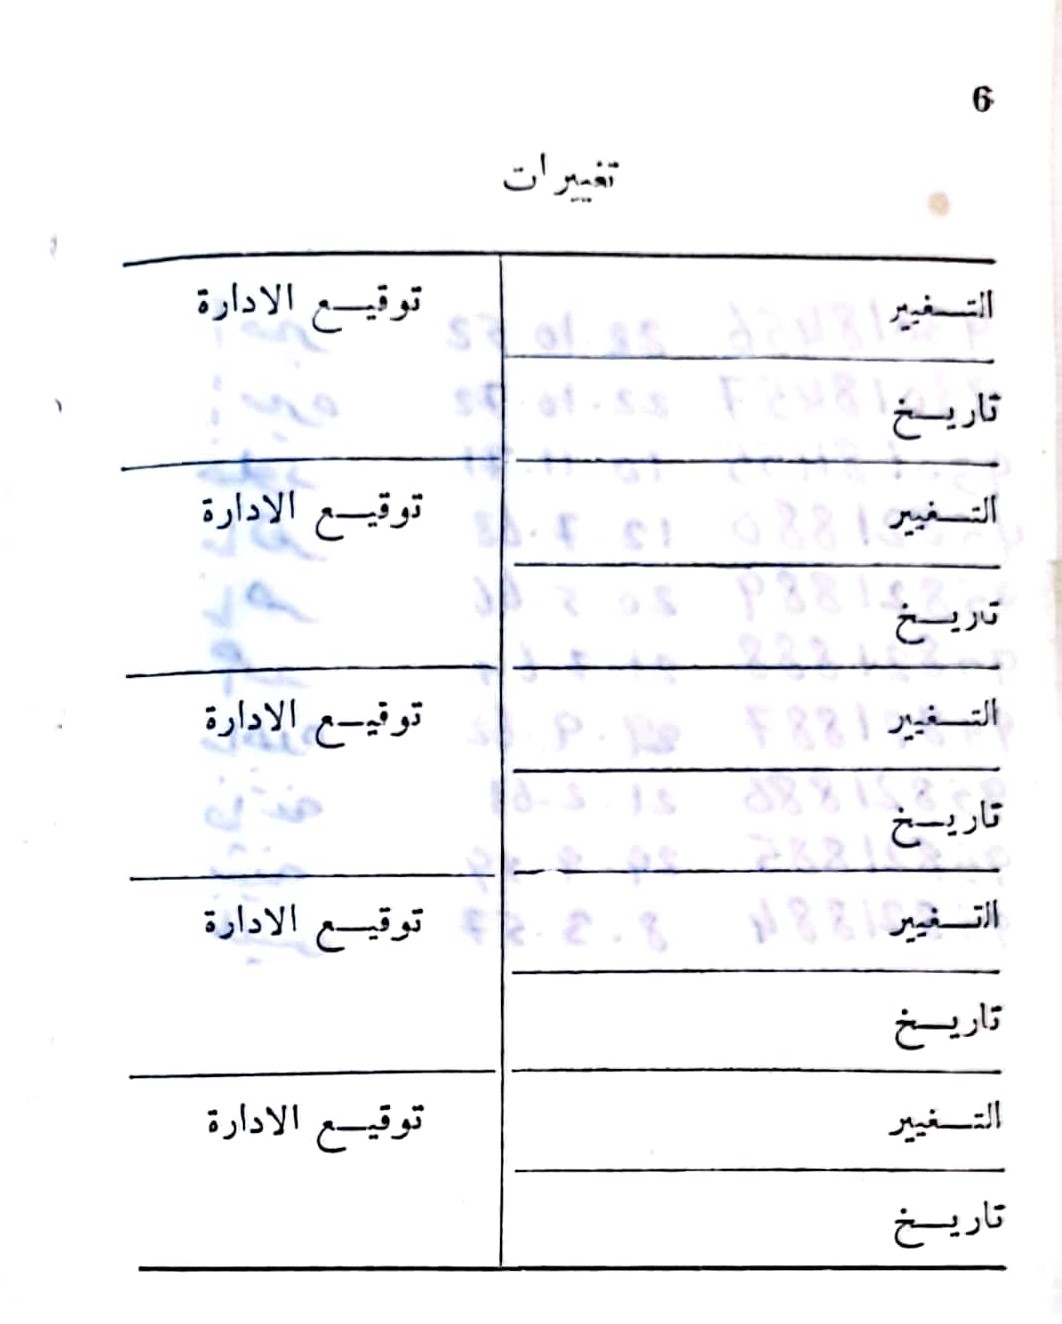 6
تغييرات
التغيير توقيع الادارة
تاريخ
التغيير توقيع الادارة
تاريخ
التغيير توقيع الادارة
تاريخ
التغيير توقيع الادارة
تاريخ
التغيير توقيع الادارة
تاريخ